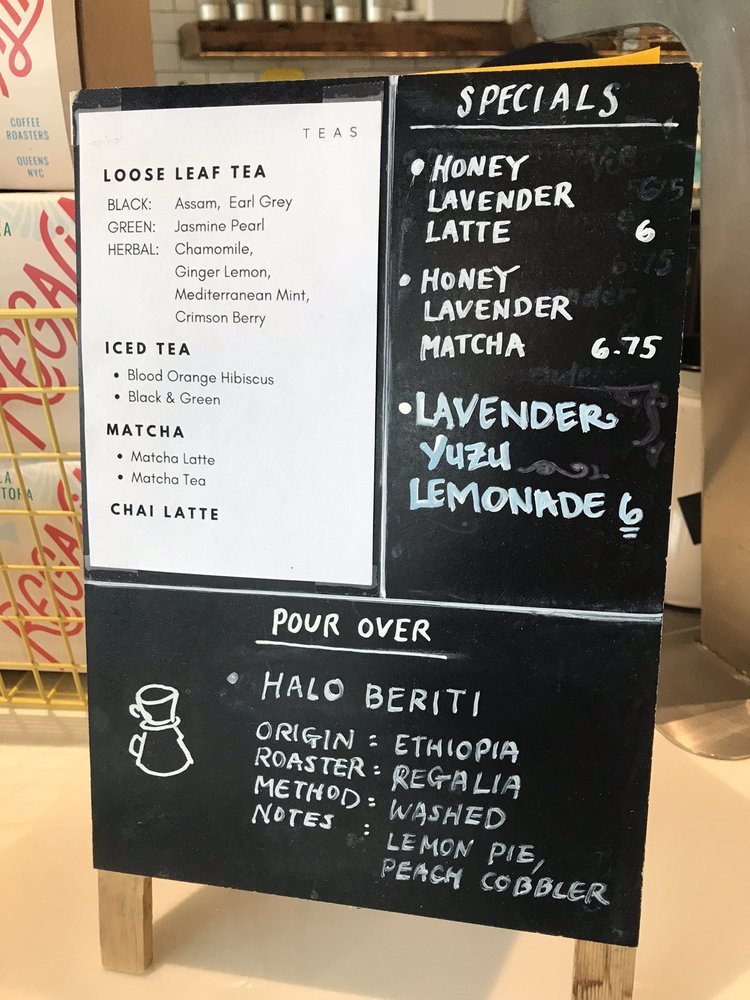 COFFEE
ROASTERS
QUEENS
NYC
REGALIA
TEAS
LOOSE LEAF TEA
BLACK: Assam, Earl Grey
GREEN: Jasmine Pearl
HERBAL: Chamomile,
Ginger Lemon,
Mediterranean Mint,
Crimson Berry
ICED TEA
• Blood Orange Hibiscus
• Black & Green
MATCHA
• Matcha Latte
• Matcha Tea
CHAI LATTE
SPECIALS
• HONEY
LAVENDER
LATTE 6
• HONEY
LAVENDER
MATCHA 6.75
• LAVENDER
YUZU
LEMONADE 6
POUR OVER
• HALO BERITI
ORIGIN : ETHIOPIA
ROASTER : REGALIA
METHOD : WASHED
NOTES : LEMON PIE,
PEACH COBBLER